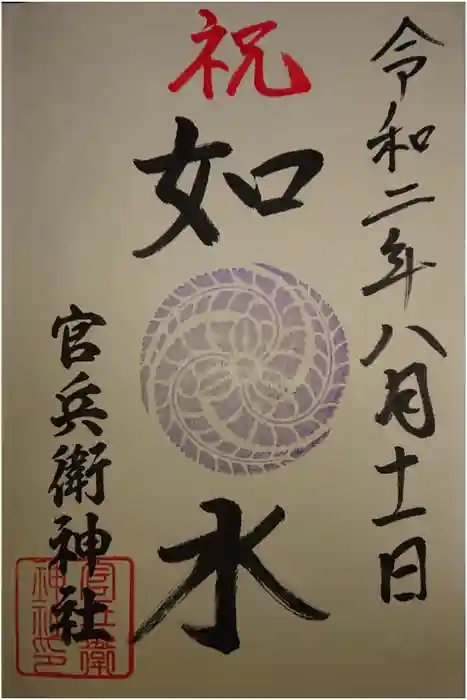 令和二年八月十一日
祝
如水
官兵衛神社
官兵衛
神社印